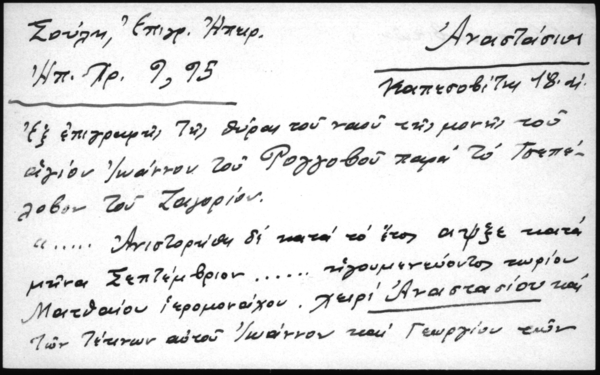 Σούλη, Ἐπιγρ. Ἠπειρ.
Ἠπ. Χρ. 9, 95
Ἀναστάσιος
Καπεσοβίτης 18. αἰ.
Ἐξ ἐπιγραφῆς τῆς θύρας τοῦ ναοῦ τῆς μονῆς τοῦ
ἁγίου Ἰωάννου τοῦ Ρογγοβοῦ παρά τό Τσεπέ-
λοβον τοῦ Ζαγορίου.
"..... Ἀνιστορήθη δέ κατά τό ἔτος αψξε κατά
μῆνα Σεπτέμβριον ...... ἡγουμενεύοντος κυρίου
Ματθαίου ἱερομονάχου. χειρί Ἀναστασίου καί
τῶν τέκνων αὐτοῦ Ἰωάννου καί Γεωργίου τῶν